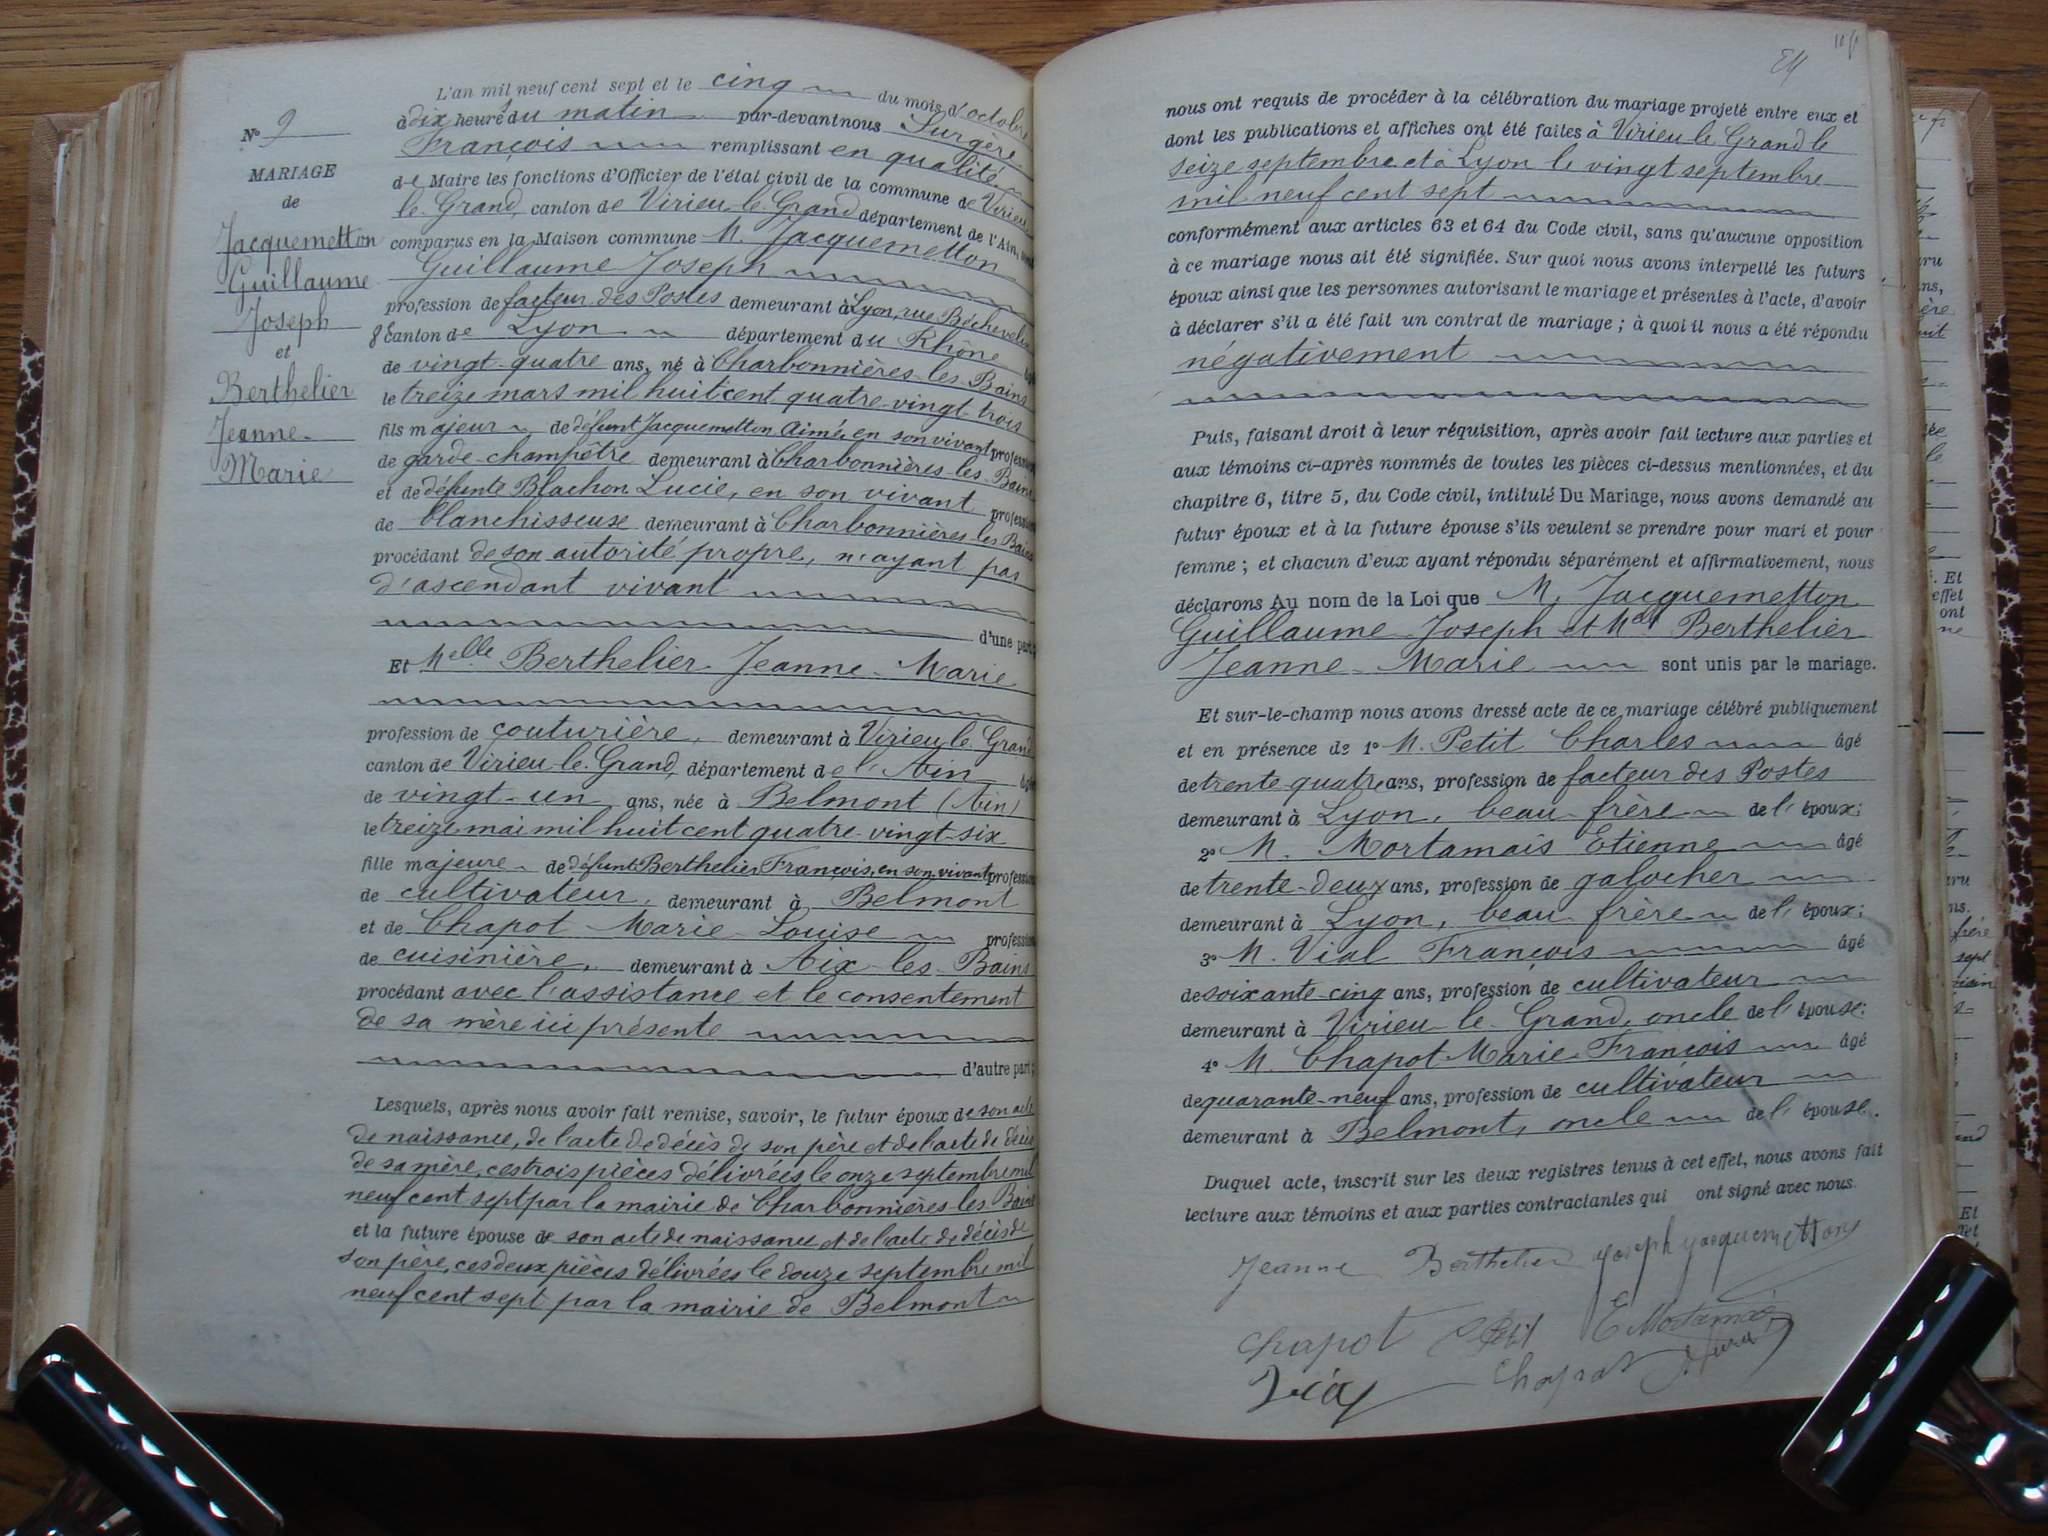 N° 9
MARIAGE
de
Jacquemetton
Guillaume
Joseph
et
Berthelier
Jeanne-
Marie
L'an mil neuf cent sept et le cinq du mois d'octobre
à dix heures du matin par-devant nous Surgère
François remplissant en qualité
de Maire les fonctions d'Officier de l'état civil de la commune de Virieu
le Grand, canton de Virieu le Grand département de l'Ain, sont
comparus en la Maison commune M. Jacquemetton
Guillaume Joseph
profession de facteur des Postes demeurant à Lyon, rue Béchevelin
8 Canton de Lyon département du Rhône
de vingt-quatre ans, né à Charbonnières-les-Bains
le treize mars mil huit cent quatre-vingt-trois
fils majeur de défunt Jacquemetton Aimé, en son vivant profession
de garde-champêtre demeurant à Charbonnières-les-Bains
et de défunte Blachon Lucie, en son vivant profession
de blanchisseuse demeurant à Charbonnières-les-Bains
procédant de son autorité propre, n'ayant pas
d'ascendant vivant
d'une part
Et Melle Berthelier Jeanne-Marie
profession de couturière, demeurant à Virieu le Grand
canton de Virieu-le-Grand, département de l'Ain âgée
de vingt-un ans, née à Belmont (Ain)
le treize mai mil huit cent quatre-vingt-six
fille majeure de défunt Berthelier François, en son vivant profession
de cultivateur, demeurant à Belmont
et de Chapot Marie Louise profession
de cuisinière, demeurant à Aix-les-Bains
procédant avec l'assistance et le consentement
de sa mère ici présente
d'autre part;
Lesquels, après nous avoir fait remise, savoir, le futur époux de son acte
de naissance, de l'acte de décès de son père et de l'acte de décès
de sa mère, ces trois pièces délivrées le onze septembre mil
neuf cent sept par la mairie de Charbonnières-les-Bains
et la future épouse de son acte de naissance et de l'acte de décès de
son père, ces deux pièces délivrées le douze septembre mil
neuf cent sept par la mairie de Belmont
nous ont requis de procéder à la célébration du mariage projeté entre eux et
dont les publications et affiches ont été faites à Virieu-le-Grand le
seize septembre et à Lyon le vingt septembre
mil neuf cent sept
conformément aux articles 63 et 64 du Code civil, sans qu'aucune opposition
à ce mariage nous ait été signifiée. Sur quoi nous avons interpellé les futurs
époux ainsi que les personnes autorisant le mariage et présentes à l'acte, d'avoir
à déclarer s'il a été fait un contrat de mariage ; à quoi il nous a été répondu
négativement
Puis, faisant droit à leur réquisition, après avoir fait lecture aux parties et
aux témoins ci-après nommés de toutes les pièces ci-dessus mentionnées, et du
chapitre 6, titre 5, du Code civil, intitulé Du Mariage, nous avons demandé au
futur époux et à la future épouse s'ils veulent se prendre pour mari et pour
femme ; et chacun d'eux ayant répondu séparément et affirmativement, nous
déclarons Au nom de la Loi que M. Jacquemetton
Guillaume Joseph et Melle Berthelier
Jeanne-Marie sont unis par le mariage.
Et sur-le-champ nous avons dressé acte de ce mariage célébré publiquement
et en présence de 1° M. Petit Charles âgé
de trente-quatre ans, profession de facteur des Postes
demeurant à Lyon, beau-frère de l'époux;
2° M. Mortamais Etienne âgé
de trente-deux ans, profession de galocher
demeurant à Lyon, beau-frère de l'époux;
3° M. Vial François âgé
de soixante-cinq ans, profession de cultivateur
demeurant à Virieu-le-Grand, oncle de l'épouse;
4° M. Chapot Marie François âgé
de quarante-neuf ans, profession de cultivateur
demeurant à Belmont, oncle de l'épouse.
Duquel acte, inscrit sur les deux registres tenus à cet effet, nous avons fait
lecture aux témoins et aux parties contractantes qui ont signé avec nous.
Jeanne Berthelier Joseph Jacquemetton
Chapot Petit E Mortamais
Vial Chapot